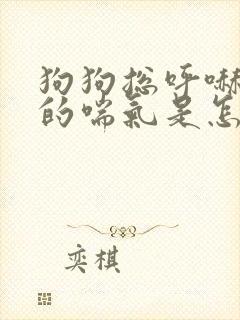 狗狗总呼嚇
的喘氣是怎
奕棋